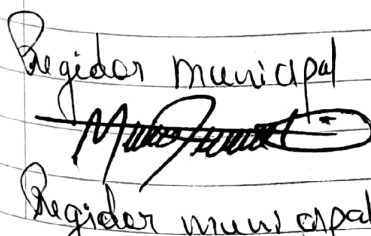 Regidor municipal
Regidor municipal